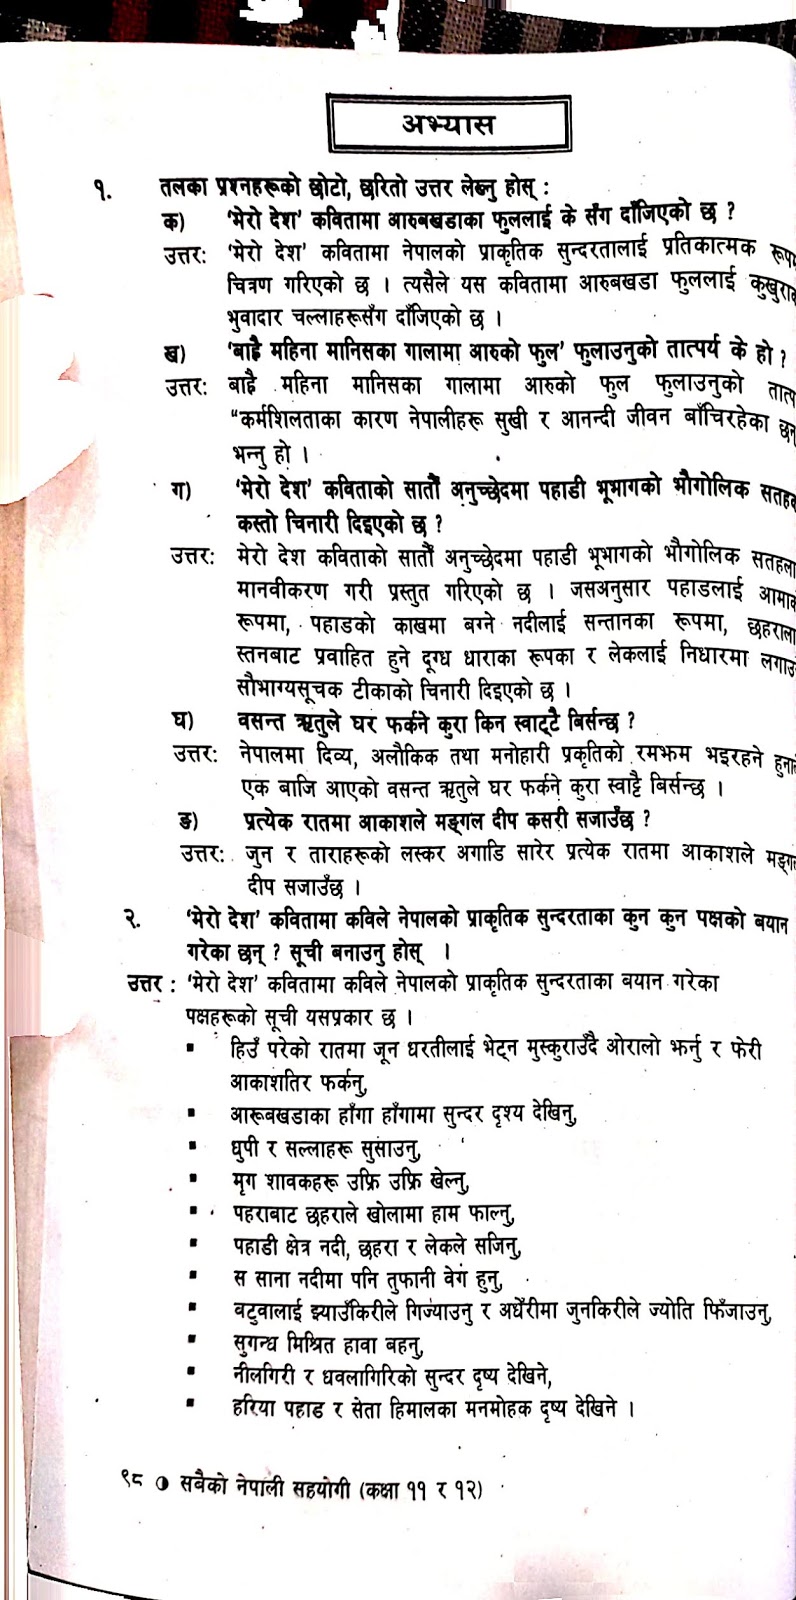 अभ्यास
१. तलका प्रश्नहरूको छोटो, छरितो उत्तर लेख्नु होस् :
क) 'मेरो देश' कवितामा आरुबखडाका फुललाई के सँग दाँजिएको छ ?
उत्तर: 'मेरो देश' कवितामा नेपालको प्राकृतिक सुन्दरतालाई प्रतिकात्मक
चित्रण गरिएको छ । त्यसैले यस कवितामा आरुबखडा फुललाई
भुवादार चल्लाहरूसँग दाँजिएको छ ।
ख) 'बाह्रै महिना मानिसका गालामा आरुको फुल' फुलाउनुको तात्पर्य के हो ?
उत्तर: बाह्रै महिना मानिसका गालामा आरुको फुल फुलाउनुको
“कर्मशिलताका कारण नेपालीहरू सुखी र आनन्दी जीवन बाँचिरहेका
भन्नु हो ।
ग) 'मेरो देश' कविताको सातौँ अनुच्छेदमा पहाडी भूभागको भौगोलिक
कस्तो चिनारी दिइएको छ ?
उत्तर: मेरो देश कविताको सातौँ अनुच्छेदमा पहाडी भूभागको भौगोलिक
मानवीकरण गरी प्रस्तुत गरिएको छ । जसअनुसार पहाडलाई
रूपमा, पहाडको काखमा बग्ने नदीलाई सन्तानका रूपमा,
स्तनबाट प्रवाहित हुने दूग्ध धाराका रूपका र लेकलाई निधारमा
सौभाग्यसूचक टीकाको चिनारी दिइएको छ ।
घ) वसन्त ऋतुले घर फर्कने कुरा किन स्वाट्टै बिर्सन्छ ?
उत्तर: नेपालमा दिव्य, अलौकिक तथा मनोहारी प्रकृतिको रमझम भइरहने
एक बाजि आएको वसन्त ऋतुले घर फर्कने कुरा स्वाट्टै बिर्सन्छ ।
ङ) प्रत्येक रातमा आकाशले मङ्गल दीप कसरी सजाउँछ ?
उत्तर: जुन र ताराहरूको लस्कर अगाडि सारेर प्रत्येक रातमा आकाशले
दीप सजाउँछ ।
२. 'मेरो देश' कवितामा कविले नेपालको प्राकृतिक सुन्दरताका कुन कुन पक्षको बयान
गरेका छन् ? सूची बनाउनु होस् ।
उत्तर : 'मेरो देश' कवितामा कविले नेपालको प्राकृतिक सुन्दरताका बयान गरेका
पक्षहरूको सूची यसप्रकार छ ।
▪ हिउँ परेको रातमा जून धरतीलाई भेट्न मुस्कुराउँदै ओरालो झर्नु र फेरी
आकाशतिर फर्कनु,
▪ आरूबखडाका हाँगा हाँगामा सुन्दर दृश्य देखिनु,
▪ धुपी र सल्लाहरू सुसाउनु,
▪ मृग शावकहरू उफ्रि उफ्रि खेल्नु,
▪ पहराबाट छहराले खोलामा हाम फाल्नु,
▪ पहाडी क्षेत्र नदी, छहरा र लेकले सजिनु,
▪ स साना नदीमा पनि तुफानी वेग हुनु,
▪ वटुवालाई झ्याउँकिरीले गिज्याउनु र अधेँरीमा जुनकिरीले ज्योति फिँजाउनु,
▪ सुगन्ध मिश्रित हावा बहनु,
▪ नीलगिरी र धवलागिरिको सुन्दर दृष्य देखिने,
▪ हरिया पहाड र सेता हिमालका मनमोहक दृष्य देखिने ।
९८ सबैको नेपाली सहयोगी (कक्षा ११ र १२)